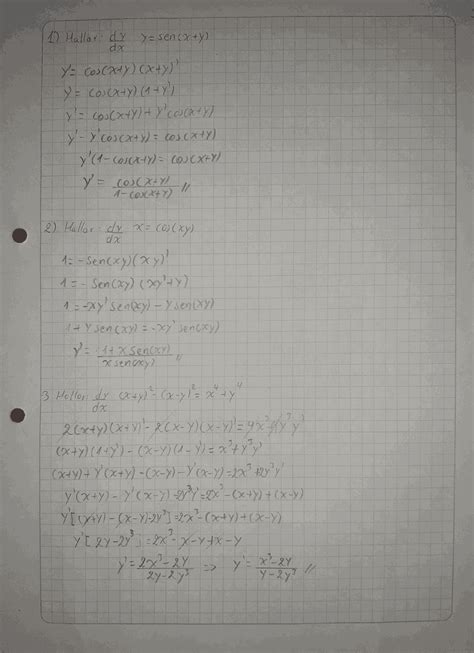 1) Hallar: dy/dx y=sen(x+y)
y'= cos(x+y)(x+y)'
y'= cos(x+y)(1+y')
y'= cos(x+y)+y'cos(x+y)
y'-y'cos(x+y)= cos(x+y)
y'(1-cos(x+y)= cos(x+y)
y'= cos(x+y)/1-cos(x+y) //
2) Hallar: dy/dx x= cos(xy)
1=-sen(xy)(xy)'
1=-sen(xy)(xy'+y)
1=-xy'sen(xy)-ysen(xy)
1+ysen(xy)=-xy'sen(xy)
y'= -1+xsen(xy)/xsen(xy) //
3. Hallar dy/dx (x+y)²-(x-y)²=x⁴+y⁴
2(x+y)(x+y)'-2(x-y)(x-y)'=4x³+4y³y'
(x+y)(1+y')-(x-y)(1-y')=x³+y³y'
(x+y)+y'(x+y)-(x-y)-y'(x-y)=2x³+2y³y'
y'(x+y)-y'(x-y)-2y³y'=2x³-(x+y)+(x-y)
y'[(x+y)-(x-y)-2y³]=2x³-(x+y)+(x-y)
y'[2y-2y³]=2x³-x-y+x-y
y'= 2x³-2y/2y-2y³ => y'= x³-2y/y-2y³ //